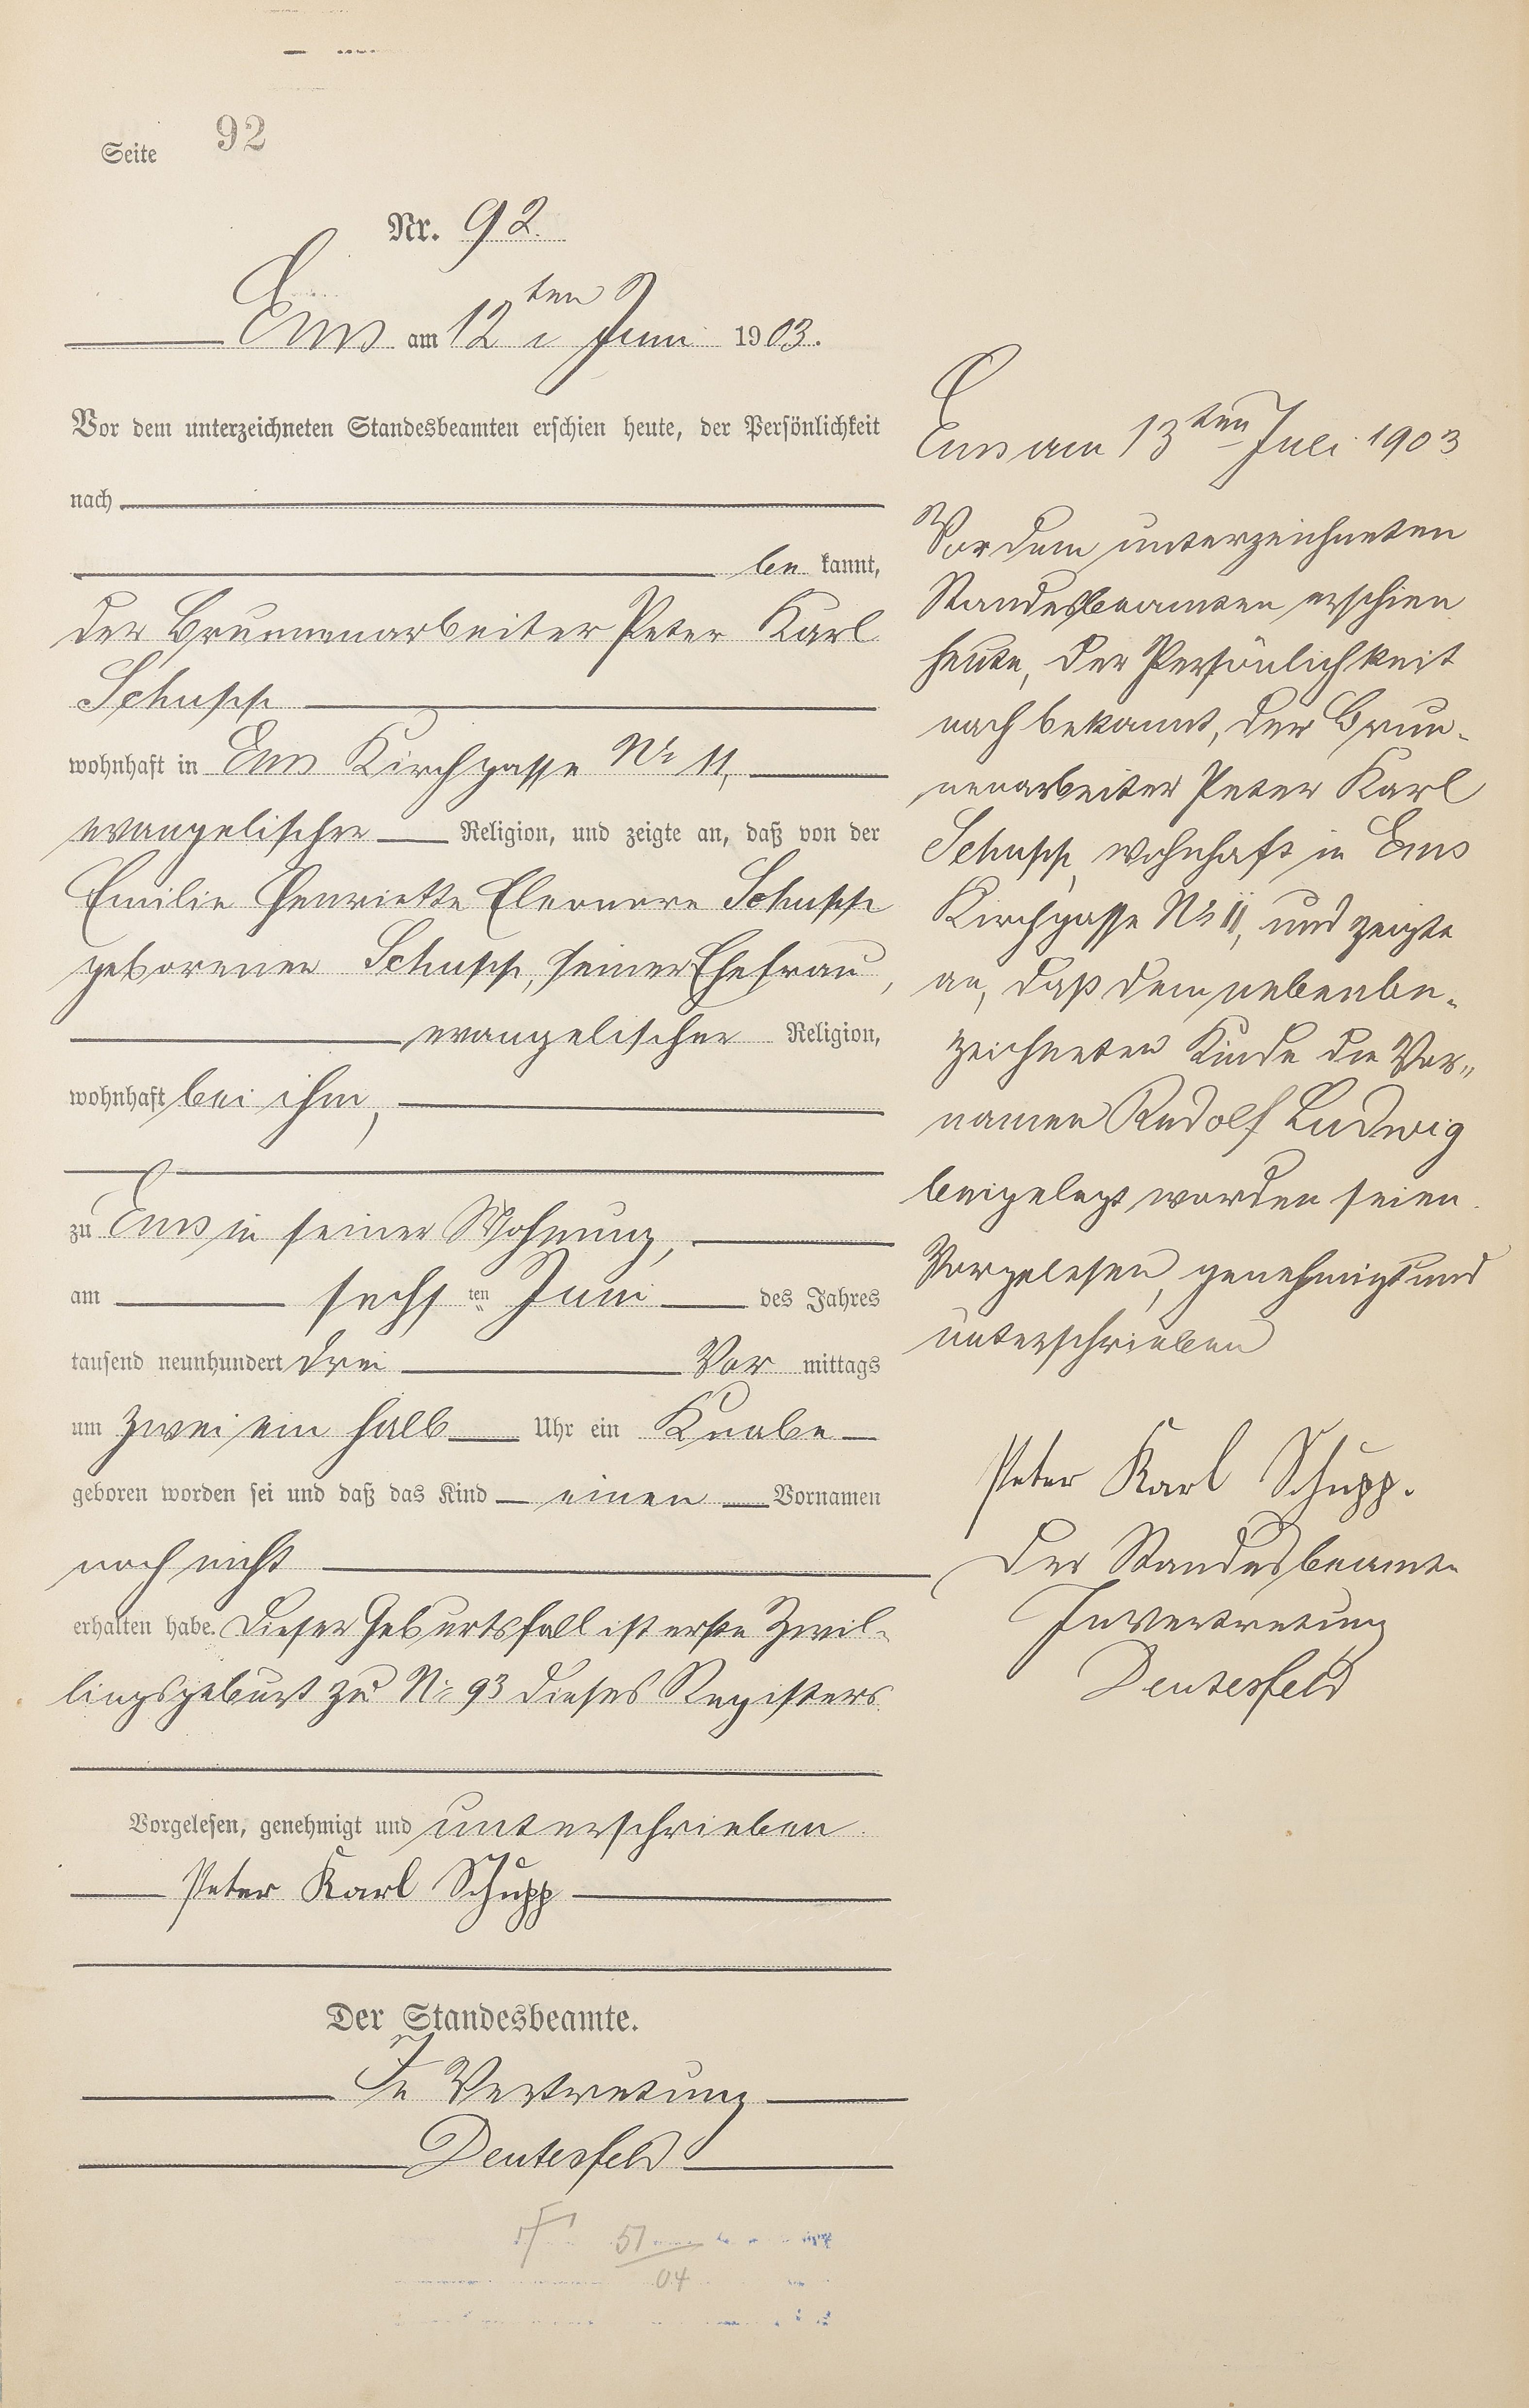 Seite 92
Nr. 92.
Ems am 12ten Juni 1903.
Vor dem unterzeichneten Standesbeamten erschien heute, der Persönlichkeit
nach
be kannt,
der Brunnenarbeiter Peter Karl
Schupp
wohnhaft in Ems Kirchgasse Nr 11,
evangelischer Religion, und zeigte an, daß von der
Emilie Henriette Eleonore Schupp
geborenen Schupp, seiner Ehefrau,
evangelischer Religion,
wohnhaft bei ihm,
zu Ems in seiner Wohnung,
am sechsten Juni des Jahres
tausend neunhundert drei Vor mittags
um zwei ein halb Uhr ein Knabe
geboren worden sei und daß das Kind einen Vornamen
noch nicht
erhalten habe. Dieser Geburtsfall ist erste Zwil-
lingsgeburt zu Nr 93 dieses Registers.
Vorgelesen, genehmigt und unterschrieben.
Peter Karl Schupp
Der Standesbeamte.
In Vertretung
Deutesfeld
51
04
Ems am 13ten Juli 1903
Vor dem unterzeichneten
Standesbeamten erschien
heute, der Persönlichkeit
nach bekannt, der Brun-
nenarbeiter Peter Karl
Schupp, wohnhaft in Ems
Kirchgasse Nr 11, und zeigte
an, daß dem nebenbe-
zeichneten Kinde die Vor-
namen Rudolf Ludwig
beigelegt worden seien.
Vorgelesen, genehmigt und
unterschrieben
Peter Karl Schupp.
Der Standesbeamte
In Vertretung
Deutesfeld